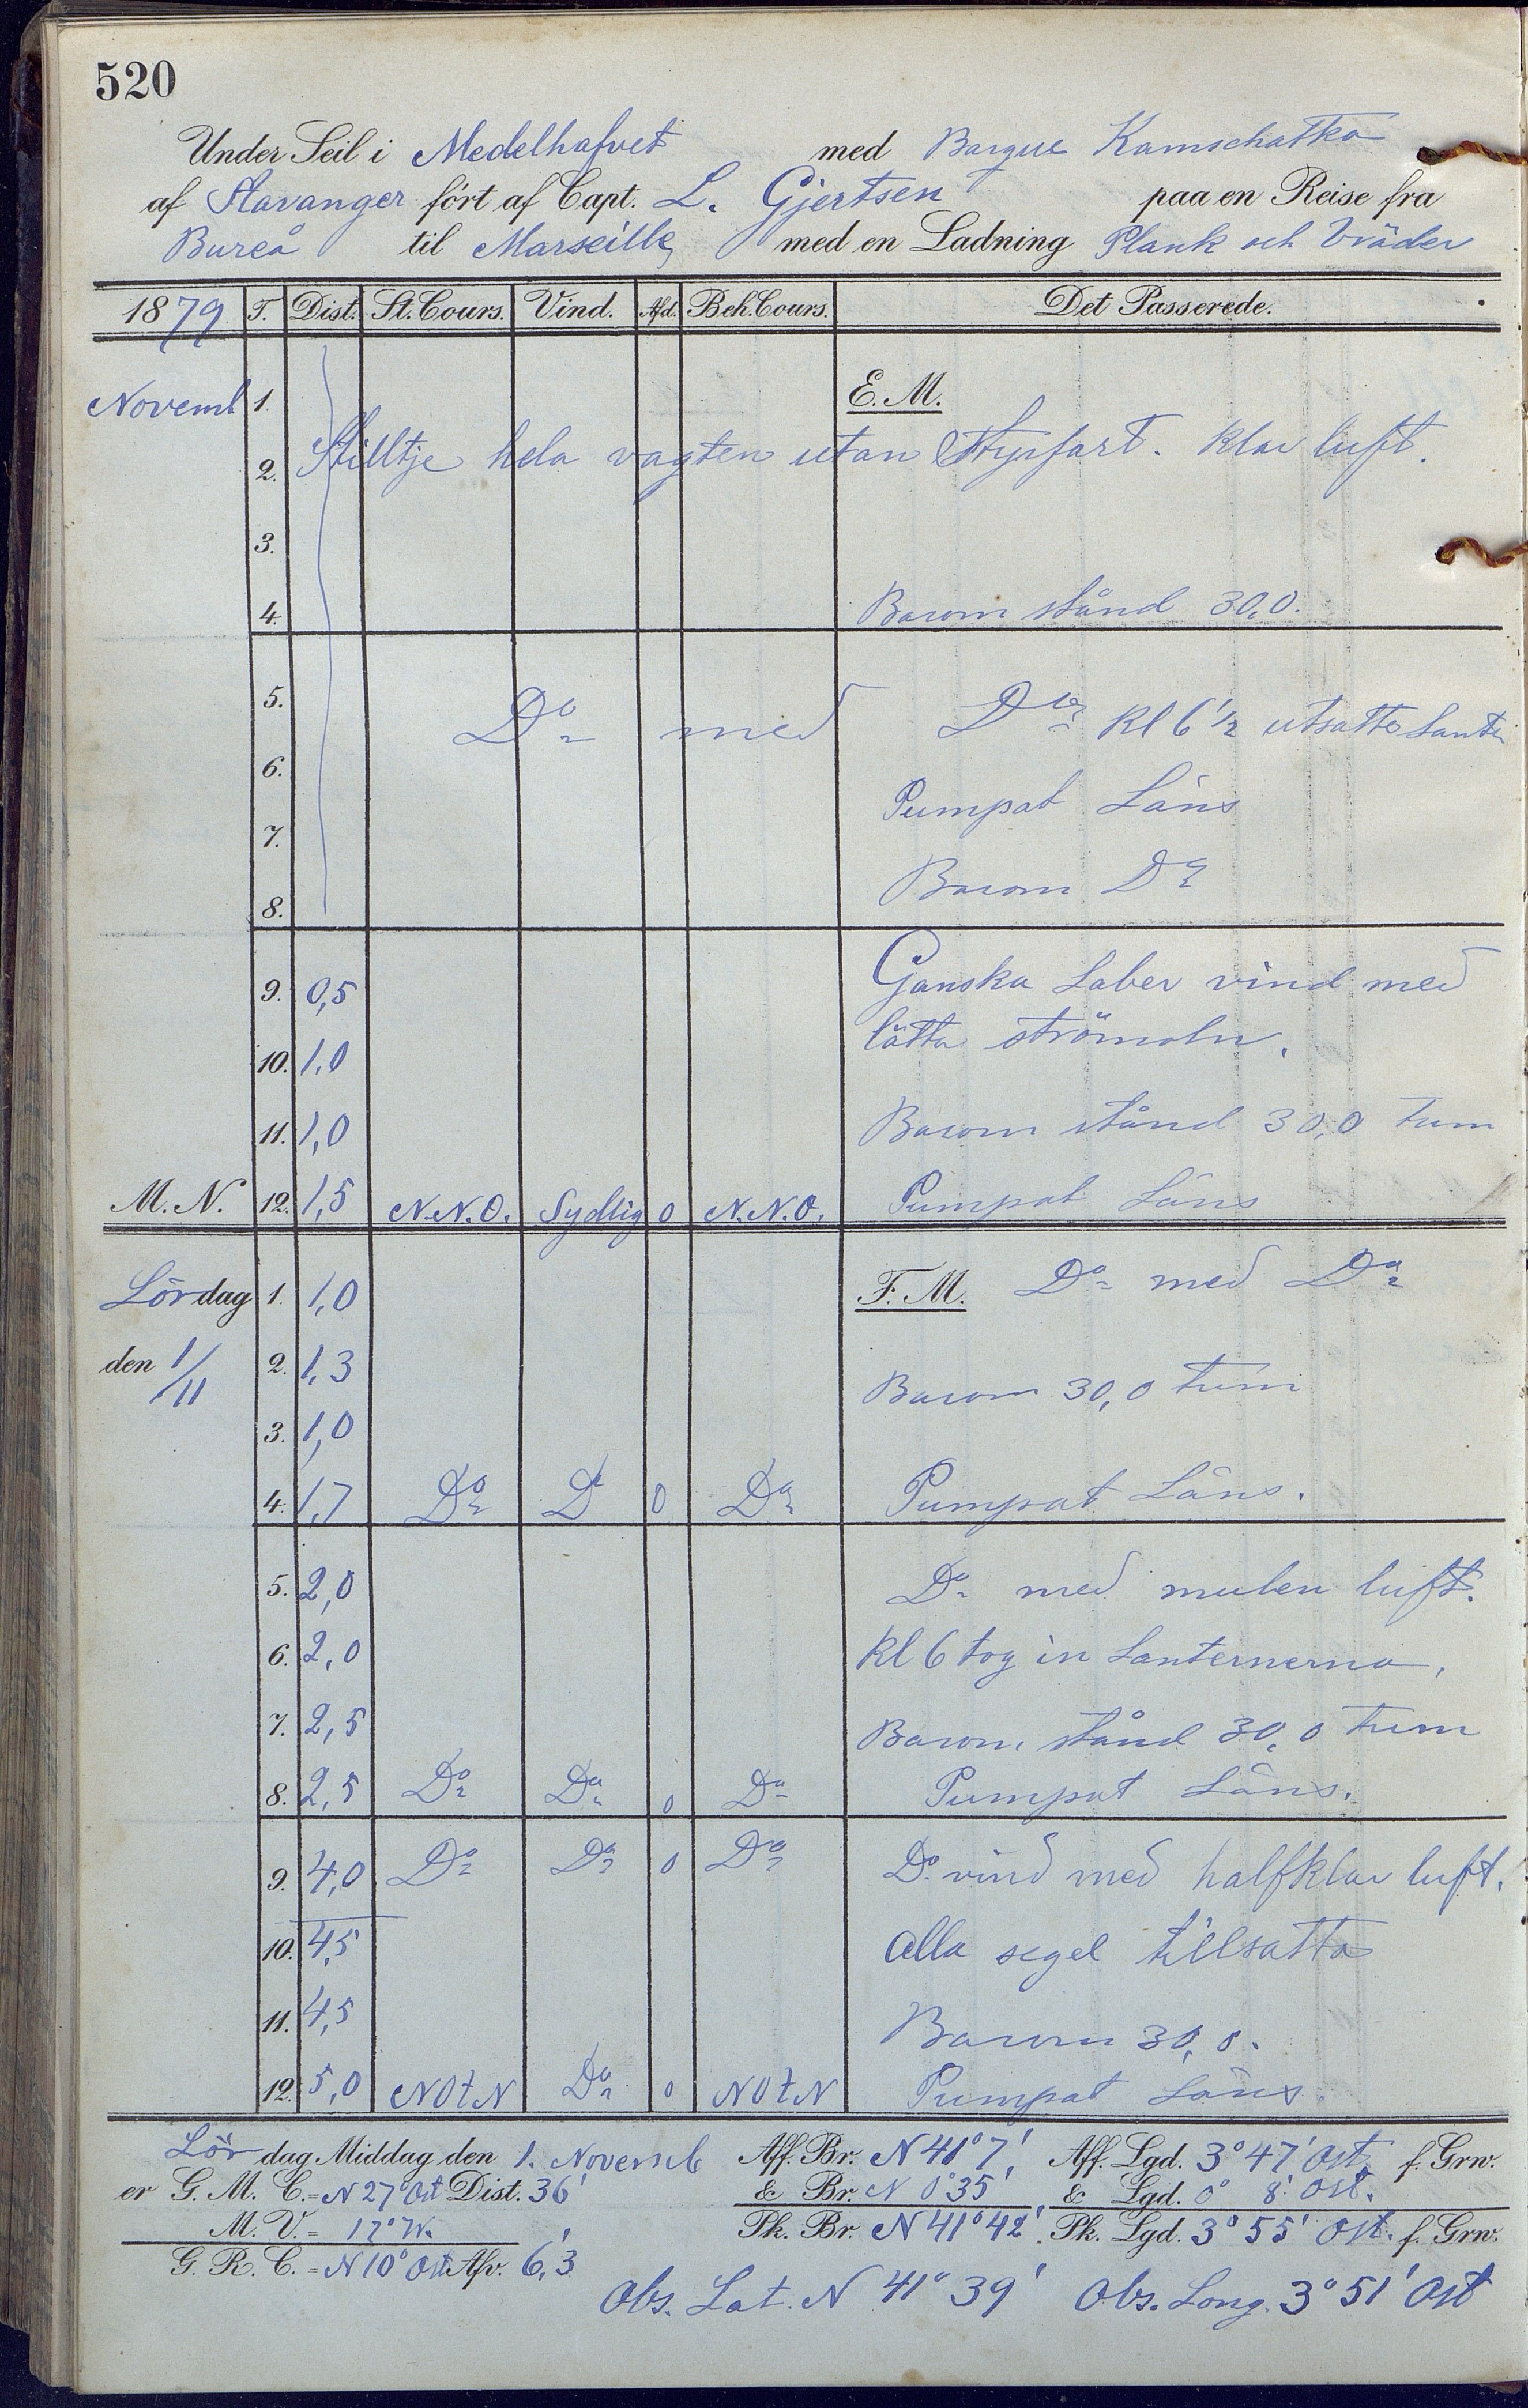 520
Under Seil i Medelhafvet med Barque Kamschatka
af Stavanger fört af Capt. L. Gjertsen paa en Reise fra
Bureå til Marseille med en Ladning Plank och Bräder
1879 T. Dist. St. Cours. Vind. Afd. Beh. Cours. Det Passerede.
Novemb 1. E. M.
2. Stilltje hela vagten utan Styrfart. Klar luft.
3.
4. Barom stånd 30,0.
5. Do med Do Kl 6 1/2 utsatte Lant
6.
Pumpat Läns
7.
Barom Do
8.
9. 0,5 Ganska Laber vind med
10. 1,0 lätta strömoln.
11. 1,0 Barom stånd 30,0 tum
M. N. 12. 1,5 N.N.O. Sydlig 0 N.N.O. Pumpat Läns
Lördag 1. 1,0 F. M. Do med Do
den 1/11 2. 1,3 Barom 30,0 tum
3. 1,0
4. 1,7 Do Do 0 Do Pumpat Läns.
5. 2,0 Do med mulen luft.
6. 2,0 Kl 6 tog in Lanternerna.
7. 2,5 Barom. stånd 30,0 tum
8. 2,5 Do Do 0 Do Pumpat Läns.
9. 4,0 Do Do 0 Do Do vind med halfklar luft.
10. 4,5 alla segel tillsatta
11. 4,5 Barom 30,0.
12. 5,0 NOtN Do 0 NOtN Pumpat Läns.
Lördag Middag den 1. Novemb Aff. Br. N 41° 7' Aff. Lgd. 3° 47' Ost f. Grw.
er G. M. C. = N 27° Ost Dist. 36' & Br. N 0° 35' & Lgd. 0° 8' Ost.
M. V. = 17° W. Pk. Br. N 41° 42' Pk. Lgd. 3° 55' Ost. f. Grw.
G. R. C. = N 10° Ost Afv. 6,'3
Obs. Lat. N 41° 39' Obs. Long. 3° 51' Ost